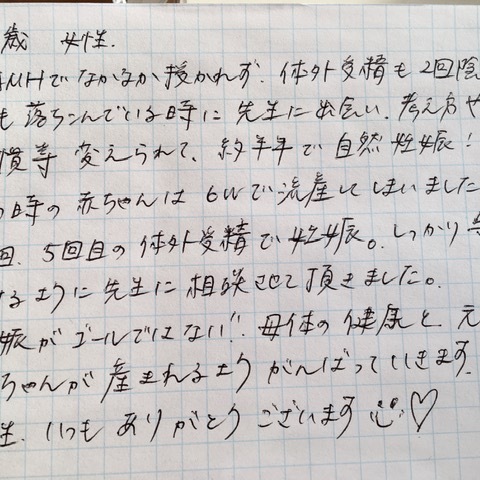 歳 女性.
AMHでなかなか授かれず. 体外受精も2回陰
も落ちこんでいる時に先生に出会い. 考え方や
慣等 変えられて、約半年で自然妊娠!
の時の赤ちゃんは 6Wで流産してしまいました
回. 5回目の体外受精で妊娠。しっかり
るように先生に相談させて頂きました。
娠がゴールではない!! 母体の健康と、元
ちゃんが産まれるよう がんばっていきます.
生. いつもありがとうございます ♡